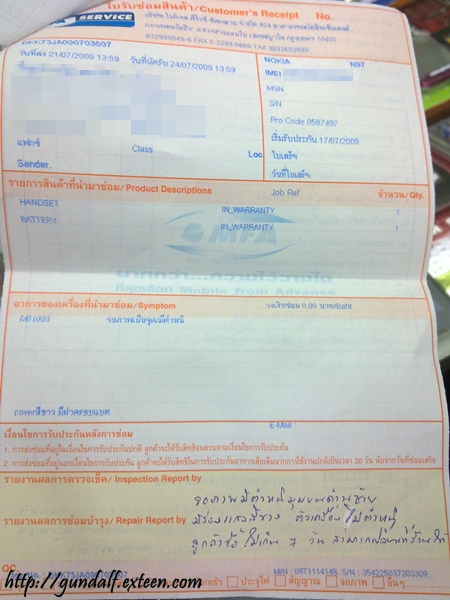 ใบรับซ่อมสินค้า/Customer's Receipt No.
SERVICE
BKK7SJA090703507
วันที่ส่ง 21/07/2009 13:59 วันที่นัดรับ 24/07/2009 13:59
NOKIA N97
IMEI
MSN
S/N
Pro Code 0587497
เริ่มรับประกัน 17/07/2009
แฟกซ์ Class Loc ใบเสร็จ
Sender. วันที่ใบเสร็จ
รายการสินค้าที่นำมาซ่อม/ Product Descriptions Job Ref จำนวน/ Qty.
HANDSET IN_WARRANTY 1
BATTERY IN_WARRANTY 1
MFA
มากกว่า...ความไว้วางใจ
ที่สุดเลือก Mobile from Advance
อาการของเครื่องที่นำมาซ่อม/ Symptom 0.00 บาท/Baht
จอภาพเป็นจุด/มีตำหนิ
coverสีขาว มีฝาครอบแบต
E-Mail
เงื่อนไขการรับประกันหลังการซ่อม
1. การส่งซ่อมที่อยู่ในเงื่อนไขการรับประกันปกติ ลูกค้าจะได้รับสิทธิจนครบตามเงื่อนไขการรับประกัน
2. การส่งซ่อมที่อยู่นอกเงื่อนไขการรับประกัน ลูกค้าจะได้รับสิทธิในการรับประกันอาการเสียเดิมจากการใช้งานปกติเป็นเวลา 30 วัน นับจากวันที่ซ่อมเสร็จ
รายงานผลการตรวจเช็ค/ Inspection Report by
จอภาพมีตำหนิมุมบนด้านซ้าย
รายงานผลการซ่อมบำรุง/ Repair Report by
มีร่องแสงสีขาว ตัวเครื่องไม่มีตำหนิ
ลูกค้าซื้อไม่เกิน 7 วัน
QC
http://gundalf.exteen.com
M/N : 0871114148 S/N : 354225037203309
ประตูไฟ สัญญาณ จอภาพ อื่นๆ